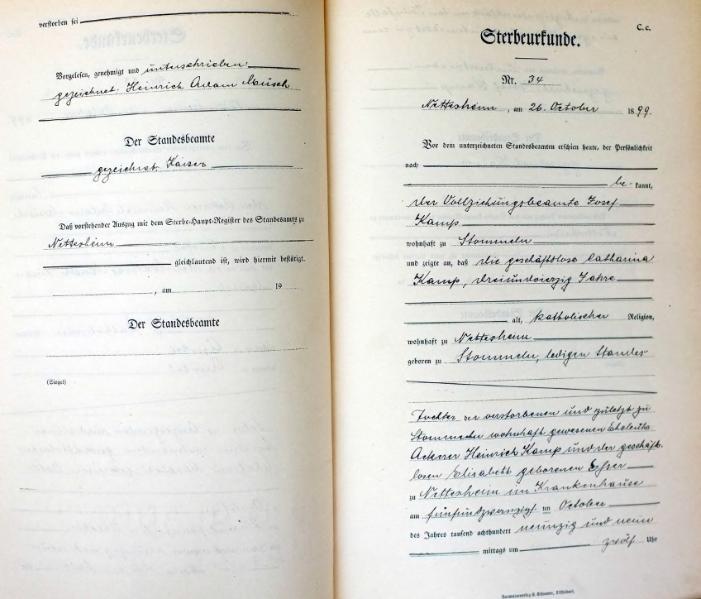 verstorben sei
Vorgelesen, genehmigt und unterschrieben
gezeichnet. Heinrich Adam Müsch
Der Standesbeamte
gezeichnet Kaiser
Daß vorstehender Auszug mit dem Sterbe-Haupt-Register des Standesamts zu
Nettersheim
gleichlautend ist, wird hiermit bestätigt.
, am 19
Der Standesbeamte
(Siegel)
C.c.
Sterbeurkunde.
Nr. 34
Nettersheim, am 26. October 1899.
Vor dem unterzeichneten Standesbeamten erschien heute, der Persönlichkeit
nach
be- kannt,
der Vollziehungsbeamte Josef
Kamp
wohnhaft zu Stommeln
und zeigte an, daß die geschäftlose Catharina
Kamp, dreiundvierzig Jahre
alt, katholischer Religion,
wohnhaft zu Nettersheim
geboren zu Stommeln, ledigen Standes
Tochter der verstorbenen und zuletzt zu
Stommeln wohnhaft gewesenen Eheleute
Ackerer Heinrich Kamp und der geschäft-
losen Elisabeth geborenen
zu Nettersheim im Krankenhause
am fünfundzwanzigsten October
des Jahres tausend achthundert neunzig und neun
mittags um zwölf Uhr